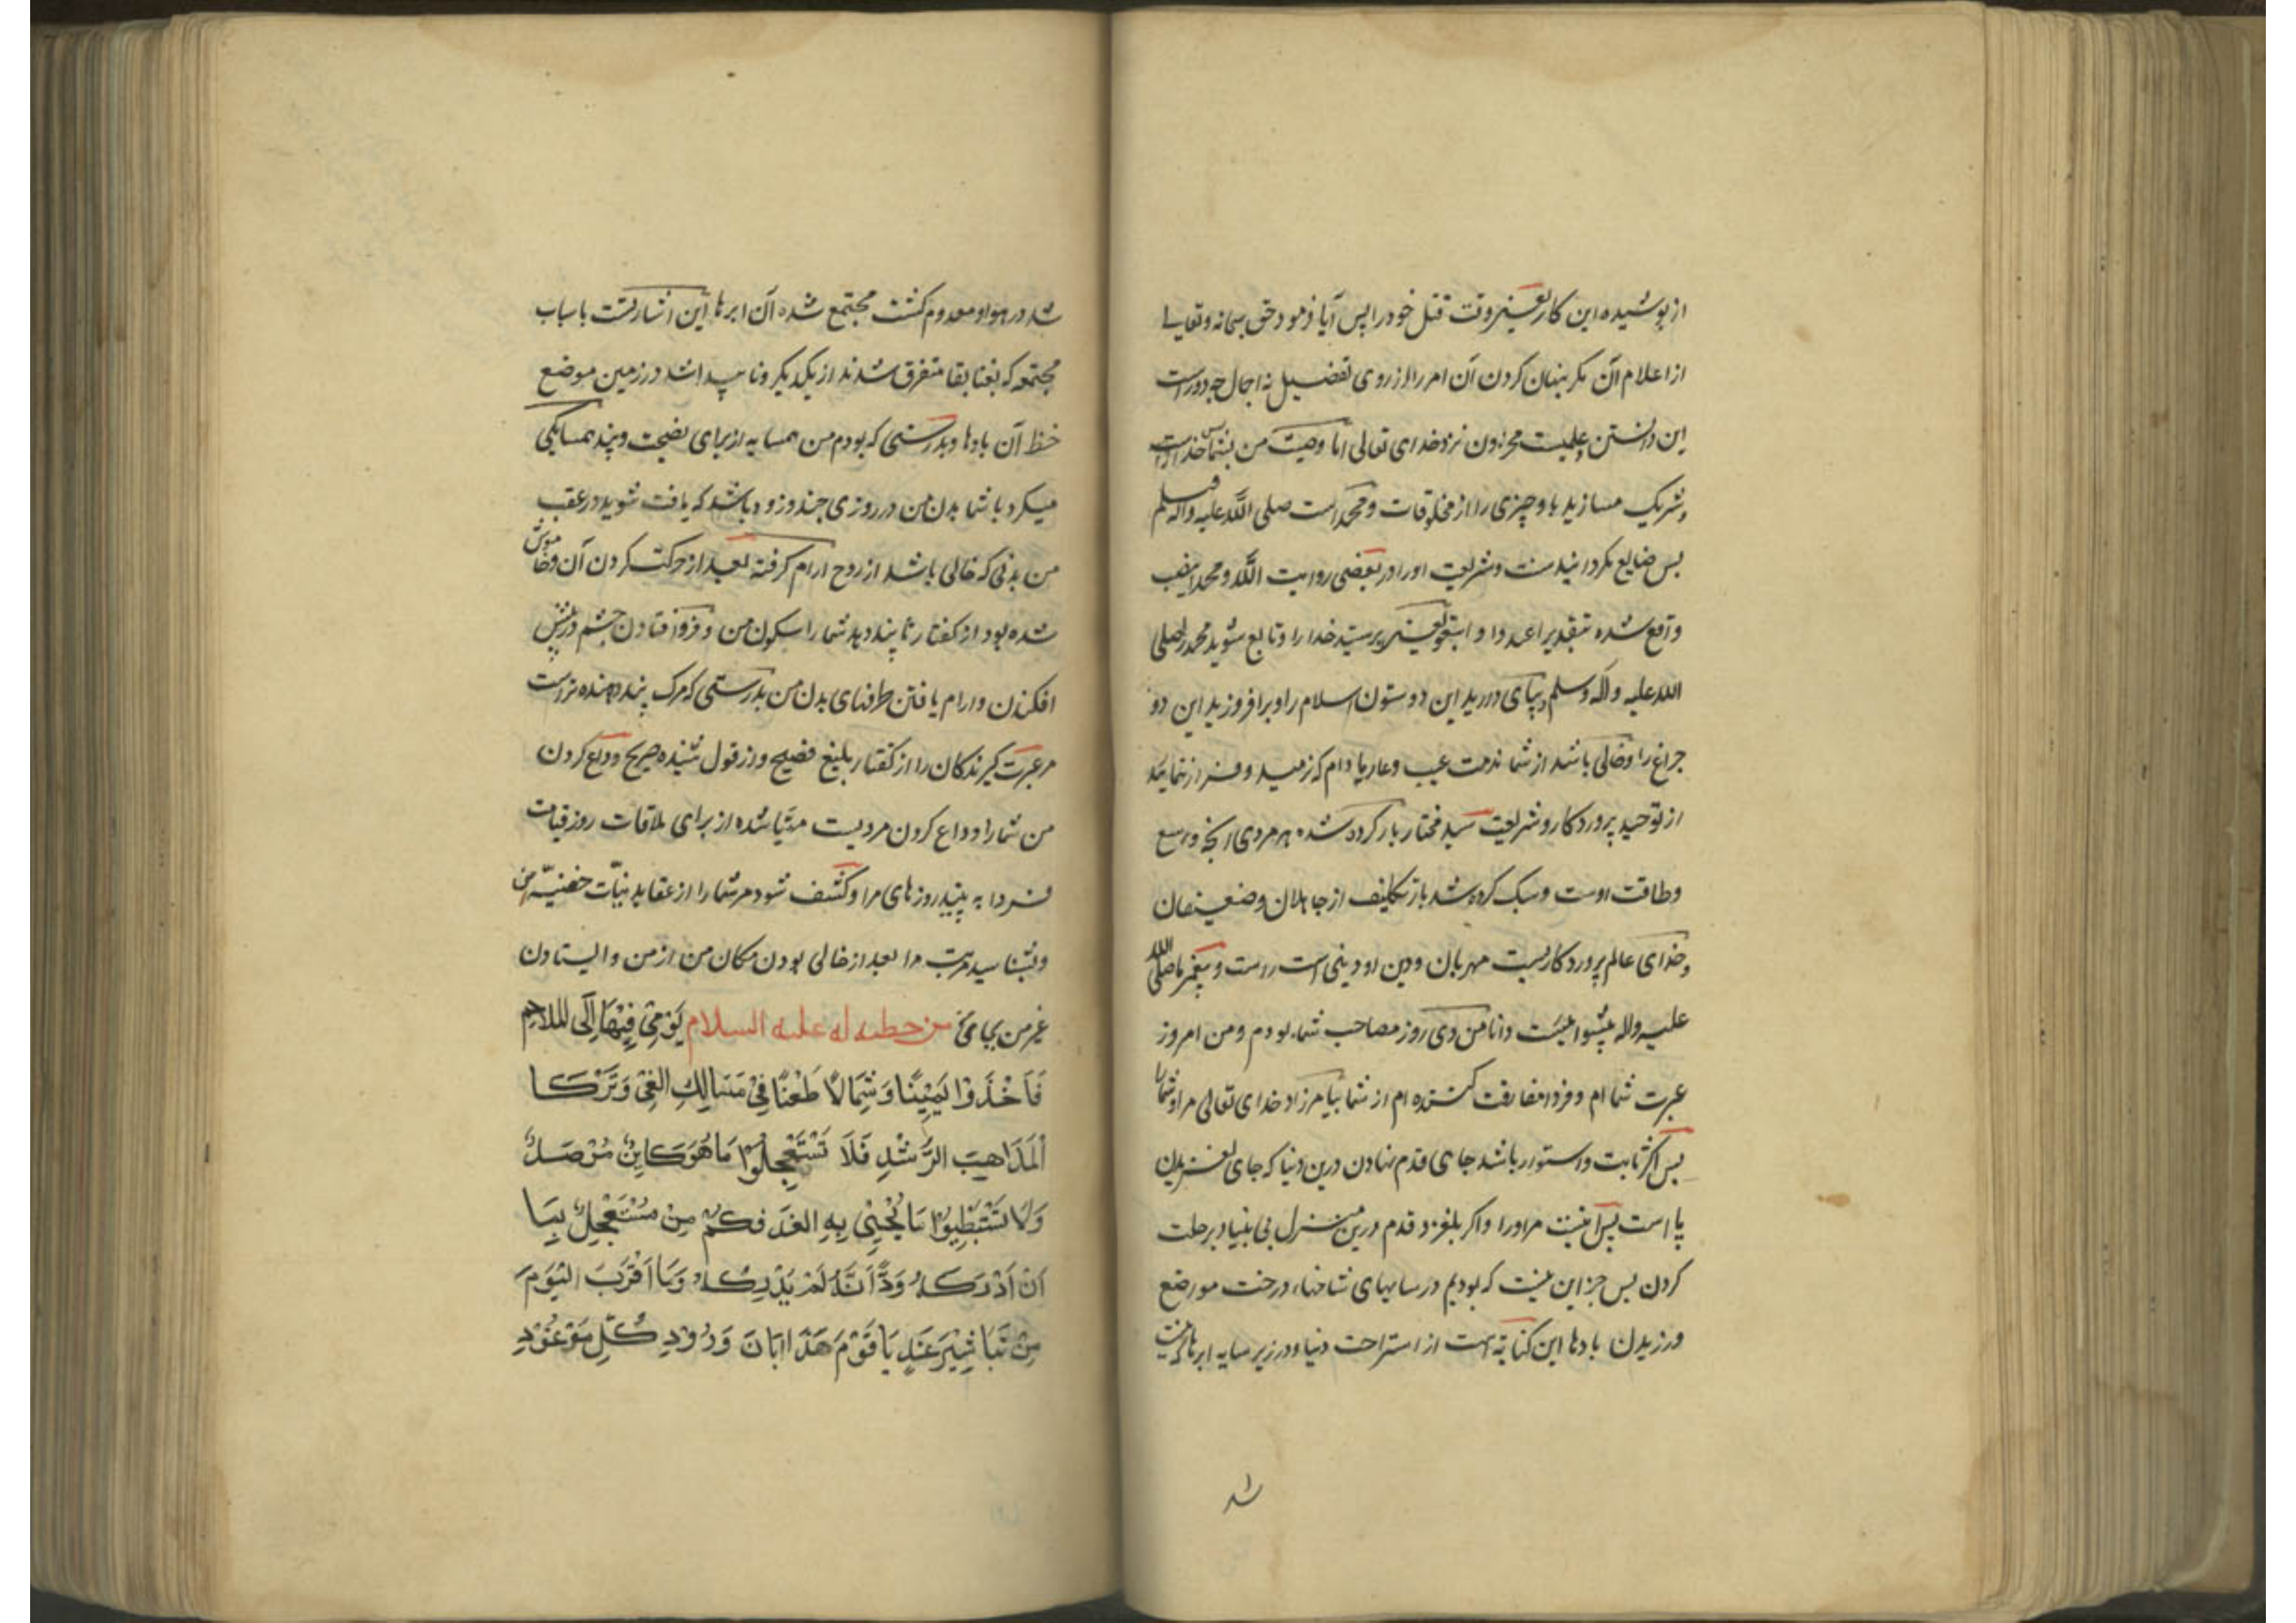 از پوشیده این کار یعنی وقت قتل خود را پس آیا فرمود حق سبحانه و تعالی
از اعلام آن مکر پنهان کردن آن امر را از روی تفضیل نه اجمال چه دور است
این دانستن علمیست مخزون نزد خدای تعالی اما وصیت من بشما پس خدا را
و شریک مسازید باو چیزی را از مخلوقات و محمد است صلی الله علیه و آله و سلم
پس ضایع مکردانید سنت و شریعت او را در بعضی روایت الله و محمدا بنصب
واقع شده بتقدیر اعبدوا و اتبعوا یعنی پرستید خدا را و تابع شوید محمد را صلی
الله علیه و آله و سلم و بپای دارید این دو ستون اسلام را و برافروزید این دو
چراغ را و خالی باشد از شما مذمت عیب و عار مادام که نرمید و فرار ننمایید
از توحید پروردکار و شریعت سید مختار بار کرده شده هر مردی آنچه وسع
و طاقت اوست و سبک کرده شد بار تکلیف از جاهلان و ضعیفان
و خدای عالم پروردکاریست مهربان و دین او دینی است راست و پیغمبر ما صلی الله
علیه و اله پیشوائیست دانا من دی روز مصاحب شما بودم و من امروز
عبرت شما ام و فردا مفارقت کننده ام از شما بیامرزاد خدای تعالی مرا و شما را
پس اکر ثابت و استوار باشد جای قدم نهادن درین دنیا که جای لغزیدن
پا است پس آنست مراد را و اکر بلغزد قدم درین منزل بی بنیاد برحلت
کردن پس جز این نیست که بودیم در سایهای شاخهاء درخت و موضع
ورزیدن بادها این کنایه است از استراحت دنیا و در زیر سایه ابرها که نیست
شد
شد در هوا و معدوم کشت مجتمع شده آن ابرها این اشارتست باسباب
مجتمعه که بفنا بقا متفرق شدند از یکدیکر و ناپیدا شد در زمین موضع
خط آن بادها و بدرستی که بودم من همسایه از برای نصیحت و پند همسایکی
میکرد با شما بدن من در روزی چند و زود باشد که یافت شوید در عقب
من بدنی که خالی باشد از روح آرام کرفته بعد از حرکت کردن آن و خاموش
شده بود از کفتار تا پند دهد شما را سکون من و فرو افتادن چشم در پیش
افکندن و ارام یافتن طرفهای بدن من بدرستی که مرک پند دهنده تر است
مر عبرت کیرندکان را از کفتار بلیغ فصیح و از قول شنیده صریح وداع کردن
من شما را وداع کردن مردیست مهیا شده از برای ملاقات روز قیامت
فردا به بینید روزهای مرا و کشف شود مر شما را از عقاید نیات خفیّه من
و بشناسید مرتبه مرا بعد از خالی بودن مکان من از من و ایستادن
غیر من بجای من من خطبه له علیه السلام یومی فیها الی الملاحم
فَاَخَذُوا یَمِیْنًا وَشِمَالًا طَعْنًا فِیْ مَسَالِكِ الغَیِّ وَتَرْكًا
الْمَذَاهِبَ الرُّشْدِ فَلَا تَسْتَعْجِلُوْا مَا هُوَ كَایِنٌ مُرْصَدٌ
وَلَا تَسْتَبْطِیُوْا مَا یَجِیْئُ بِهِ الغَدَ فَكَمْ مِنْ مُسْتَعْجِلٍ بِمَا
اَنْ اَدْرَكَهُ وَدَّ اَنَّهُ لَمْ یُدْرِكْهُ وَمَا اَقْرَبَ الْیَوْمَ
مِنْ تَبَاشِیْرِ غَدٍ یَا قَوْمِ هَذَا اِبَّانَ وَرُوْدِ كُلِّ مَوْعُوْدٍ